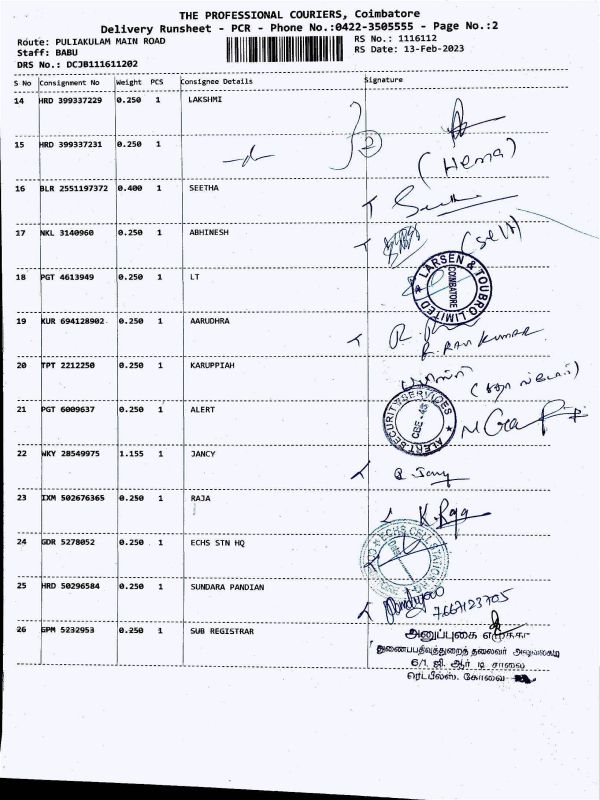 THE PROFESSIONAL COURIERS, Coimbatore
Delivery Runsheet - PCR - Phone No.:0422-3505555 - Page No.:2
Route: PULIAKULAM MAIN ROAD RS No.: 1116112
Staff: BABU RS Date: 13-Feb-2023
DRS No.: DCJB111611202
S No Consignment No Weight PCS Consignee Details Signature
14 HRD 399337229 0.250 1 LAKSHMI
2
15 HRD 399337231 0.250 1
(Hema)
16 BLR 2551197372 0.400 1 SEETHA
17 NKL 3140960 0.250 1 ABHINESH (Self)
LARSEN & TOUBRO LIMITED
COIMBATORE
18 PGT 4613949 0.250 1 LT
19 KUR 694128902 0.250 1 AARUDHRA
R. RAVI KUMAR
20 TPT 2212250 0.250 1 KARUPPIAH
ALERT SECURITY SERVICES
CBE - 45
21 PGT 6009637 0.250 1 ALERT
22 WKY 28549975 1.155 1 JANCY
23 IXM 502676365 0.250 1 RAJA K. Raja
24 GDR 5278052 0.250 1 ECHS STN HQ
ECHS CELL STATION
25 HRD 50296584 0.250 1 SUNDARA PANDIAN 7667123705
26 GPM 5232953 0.250 1 SUB REGISTRAR
அனுப்புகை
துணைப்பதிவுத்துறைத் தலைவர் அலுவலகம்
6/1, ஜி. ஆர் டி சாலை
ரெட்பீல்ஸ். கோவை